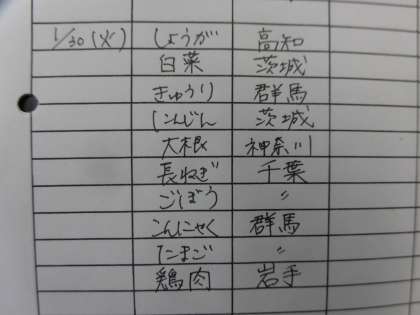 1/30(火) しょうが 高知
白菜 茨城
きゅうり 群馬
にんじん 茨城
大根 神奈川
長ねぎ 千葉
ごぼう 〃
こんにゃく 群馬
たまご 〃
鶏肉 岩手